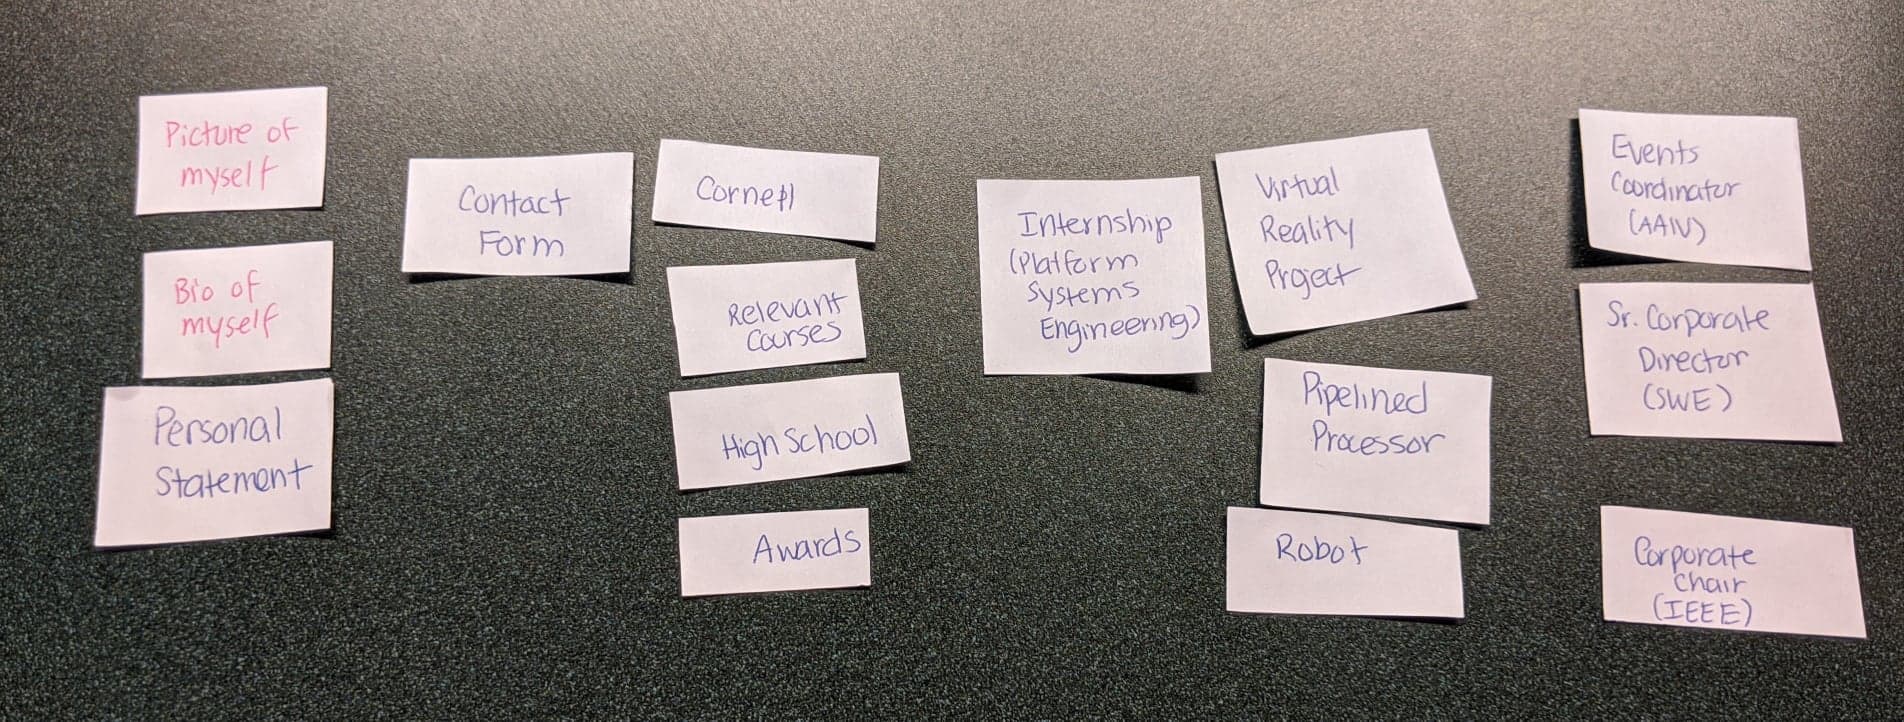 Picture of
myself
Bio of
myself
Personal
Statement
Contact
Form
Cornell
Relevant
Courses
High School
Awards
Internship
(Platform
Systems
Engineering)
Virtual
Reality
Project
Pipelined
Processor
Robot
Events
Coordinator
(AAIV)
Sr. Corporate
Director
(SWE)
Corporate
Chair
(IEEE)